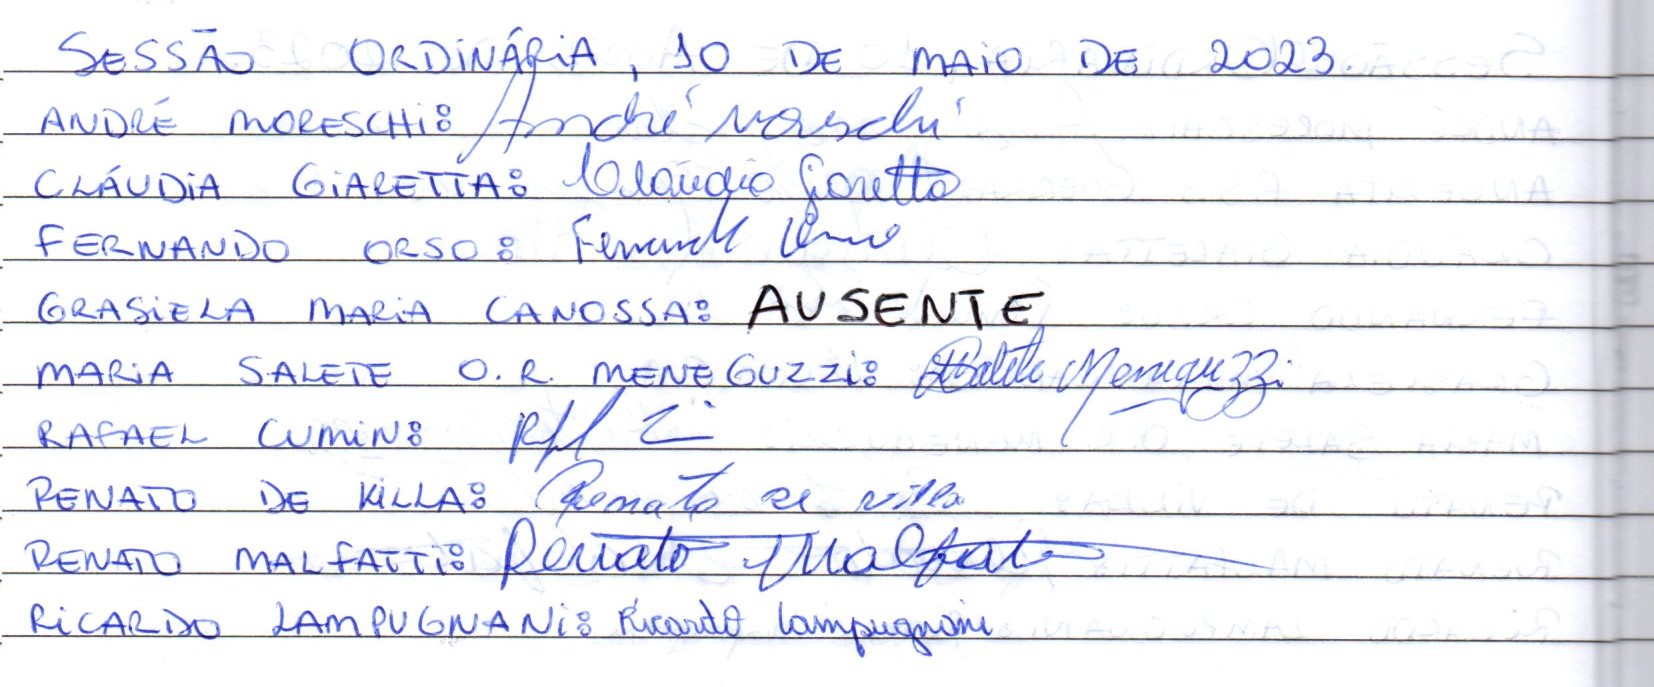 SESSÃO ORDINÁRIA, 10 DE MAIO DE 2023.
ANDRÉ MORESCHI: André Moreschi
CLÁUDIA GIARETTA: Claudia Giaretta
FERNANDO ORSO: Fernando Orso
GRASIELA MARIA CANOSSA: AUSENTE
MARIA SALETE O.R. MENEGUZZI: Salete Meneguzzi
RAFAEL CUMIN:
RENATO DE VILLA: Renato de villa
RENATO MALFATTI: Renato Malfatti
RICARDO LAMPUGNANI: Ricardo Lampugnani